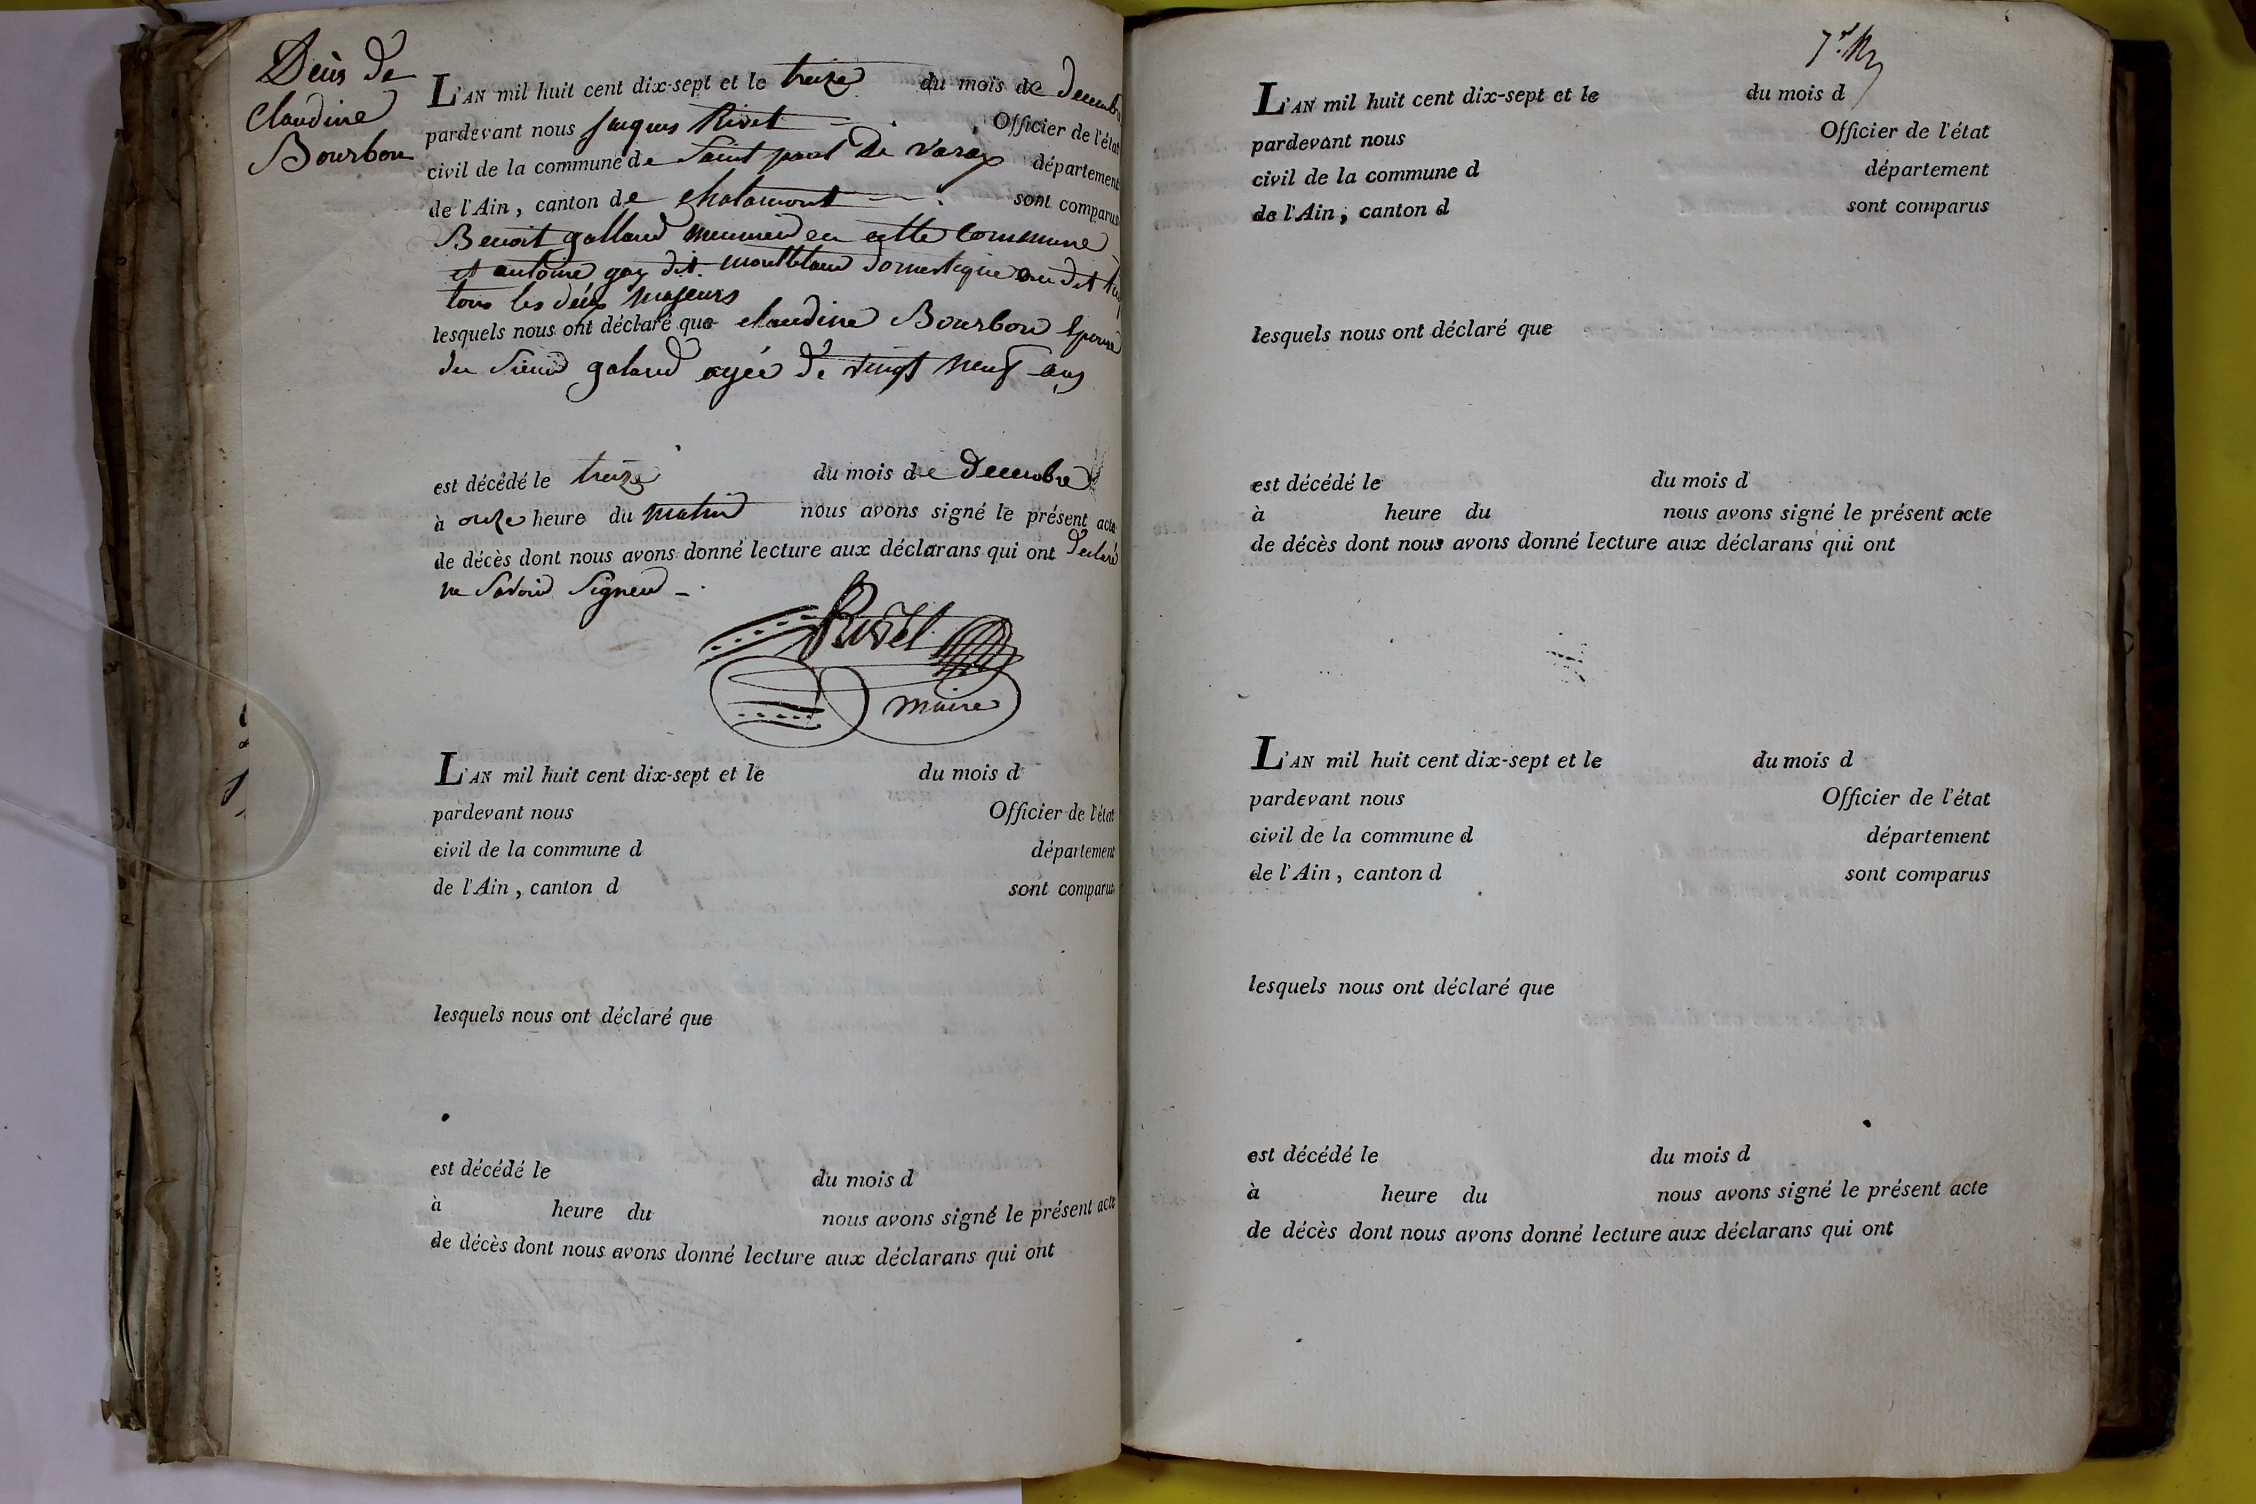 Deces de
claudine
Bourbon
L'AN mil huit cent dix-sept et le treize du mois de decembre
pardevant nous jacques Rivet Officier de l'état
civil de la commune de Saint paul de varax département
de l'Ain, canton de chalamont sont comparus
Benoit galland meunier en cette commune
et antoine gay dit montbland domestique au dit lieu
tous les deux majeurs
lesquels nous ont déclaré que claudine Bourbon Epouse
du Sieur galand agée de vingt neuf ans
est décédé le treize du mois de decembre
à onze heure du matin nous avons signé le présent acte
de décès dont nous avons donné lecture aux déclarans qui ont declaré
ne Savoir Signer
Rivet
maire
L'AN mil huit cent dix-sept et le du mois d
pardevant nous Officier de l'état
civil de la commune d département
de l'Ain, canton d sont comparus
lesquels nous ont déclaré que
est décédé le du mois d
à heure du nous avons signé le présent acte
de décès dont nous avons donné lecture aux déclarans qui ont
L'AN mil huit cent dix-sept et le du mois d
pardevant nous Officier de l'état
civil de la commune d département
de l'Ain, canton d sont comparus
lesquels nous ont déclaré que
est décédé le du mois d
à heure du nous avons signé le présent acte
de décès dont nous avons donné lecture aux déclarans qui ont
L'AN mil huit cent dix-sept et le du mois d
pardevant nous Officier de l'état
civil de la commune d département
de l'Ain, canton d sont comparus
lesquels nous ont déclaré que
est décédé le du mois d
à heure du nous avons signé le présent acte
de décès dont nous avons donné lecture aux déclarans qui ont